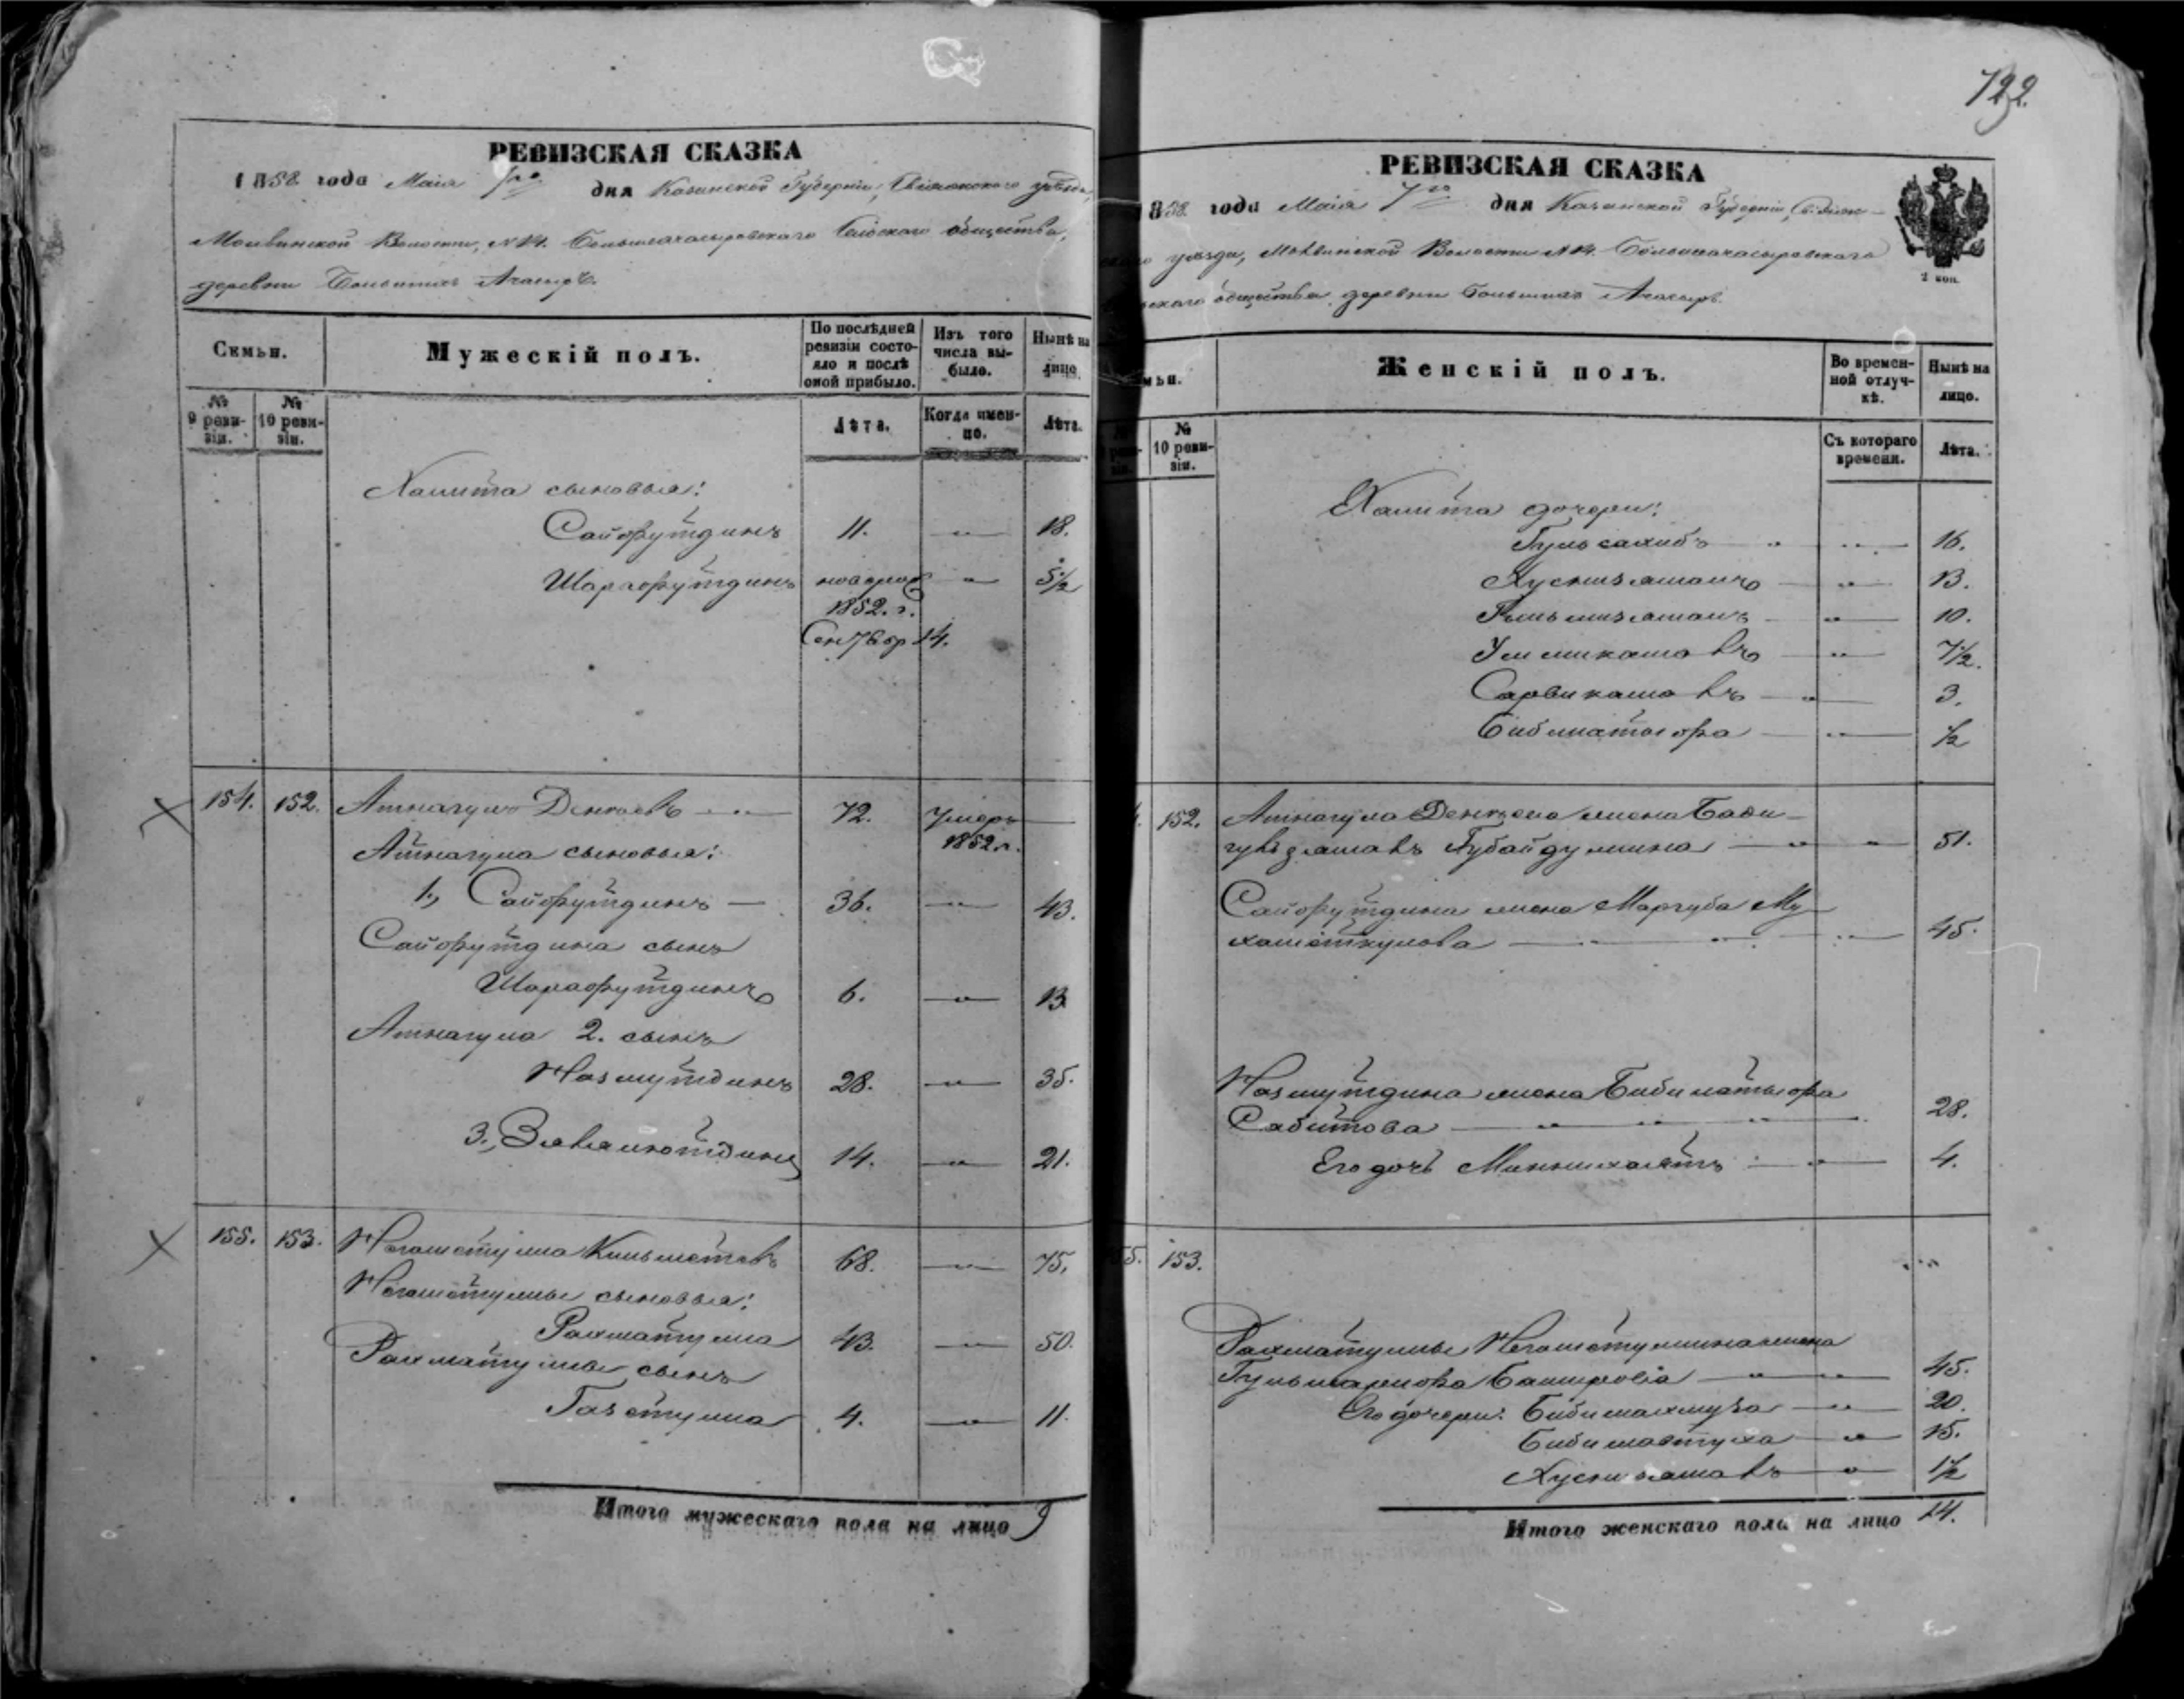 122.
РЕВИЗСКАЯ СКАЗКА
1858 года Маія 7го дня Казанской Губерніи, Свіяжскаго уѣзда,
Молвинской Волости, N 14. Большеачасыровскаго Сельскаго общества,
деревни Большихъ Ачасыръ.
Семьи.
Мужескій полъ.
По послѣдней ревизіи состояло и послѣ оной прибыло.
Изъ того числа выбыло.
Нынѣ на лицо
№ 9 ревизіи.
№ 10 ревизіи.
Лѣта.
Когда именно.
Лѣта.
Хамита сыновья:
Сайфутдинъ 11. — 18.
Шарафутдинъ новорож — 5½
1852. г.
Сентябр 14.
154. 152. Атнагулъ Денкаевъ — 72. Умеръ —
1852 г.
Атнагула сыновья:
1., Сайфутдинъ — 36. — 43.
Сайфутдина сынъ
Шарафутдинъ 6. — 13
Атнагула 2. сынъ
Назмутдинъ 28. — 35.
3., 14. — 21.
155. 153. Негаметулла Кильметевъ 68. — 75.
Негаметуллы сыновья:
Рахматулла 43. — 50.
Рахматуллы сынъ
Газетулла 4. — 11.
Итого мужескаго пола на лицо 9
РЕВИЗСКАЯ СКАЗКА
858 года Маія 7го дня Казанской Губерніи, Свіяж-
скаго уѣзда, Молвинской Волости N 14. Большеачасыровскаго
скаго общества деревни Большихъ Ачасыръ.
2 коп.
мьи.
Женскій полъ.
Во временной отлучкѣ.
Нынѣ на лицо.
№ 10 ревизіи.
Съ котораго времени.
Лѣта.
Хамита дочери:
Гульсахибъ — 16.
Хуснизямалъ — 13.
10.
Уммикамалъ — 7½.
Сарвикамалъ — 3.
Бибилатыфа — ½
152. Атнагула Денкаева жена Бади-
Губайдуллина — 51.
Сайфутдина жена Маргуба Му-
хаметкулова — 45.
Назмутдина жена Бибилатыфа
Сабитова — 28.
Его дочь — 4.
55. 153.
Рахматуллы Негаметуллина жена
Башірова — 45.
Его дочери: — 20.
15.
Хуснизямалъ — 1½
Итого женскаго пола на лицо 14.